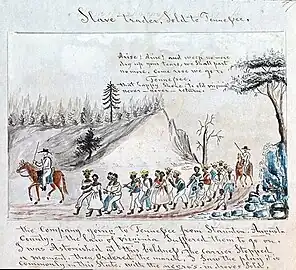 Slave trader, Sold to Tennessee.
Arise! Arise! and weep no more
dry up your tears, we shall part
no more. Come rose we go to
Tennessee,
that happy shore. to old virginia
never — never — return.
the Company going to Tennessee from Staunton. Augusta
County, — the law of Virginia Suffered them to go on.
I was Astonished at this boldness, the carrier Stopped
a moment, then Ordered the march, I saw the play it is
Commonly in this State, with the negro's in droves Sold.